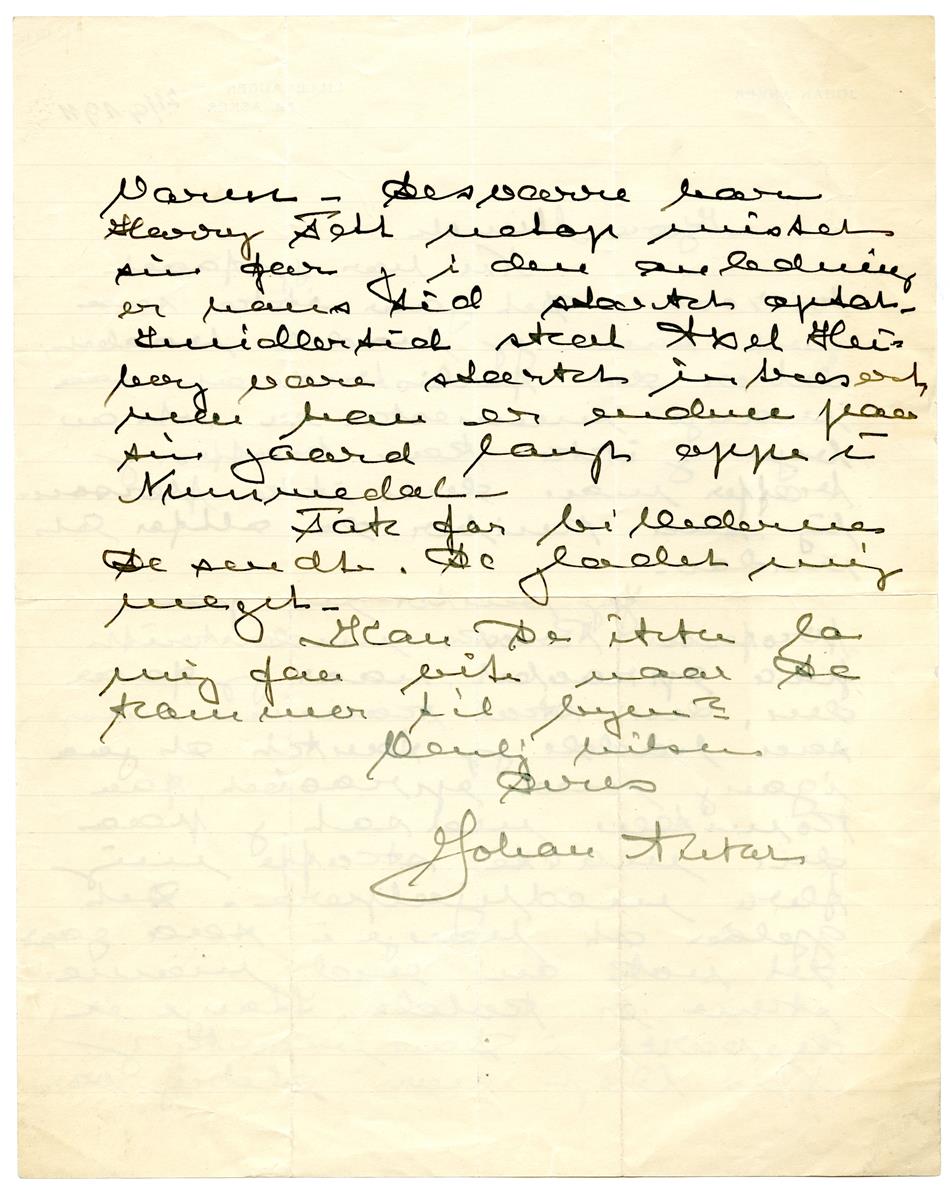 Varer – Desværre har
Harry Fett netop mistet
sin far & i den anledning
er hans tid stærkt optat –
Imidlertid skal Axel Hei-
berg være stærkt intresert,
men han er endnu paa
sin gaard langt oppe i
Nummedal –
Tak for billederne
De sendte. De glædet mig
meget –
Kan De ikke la
mig faa vite naar De
kommer til byen?
Venlig hilsen
Deres
Johan Anker